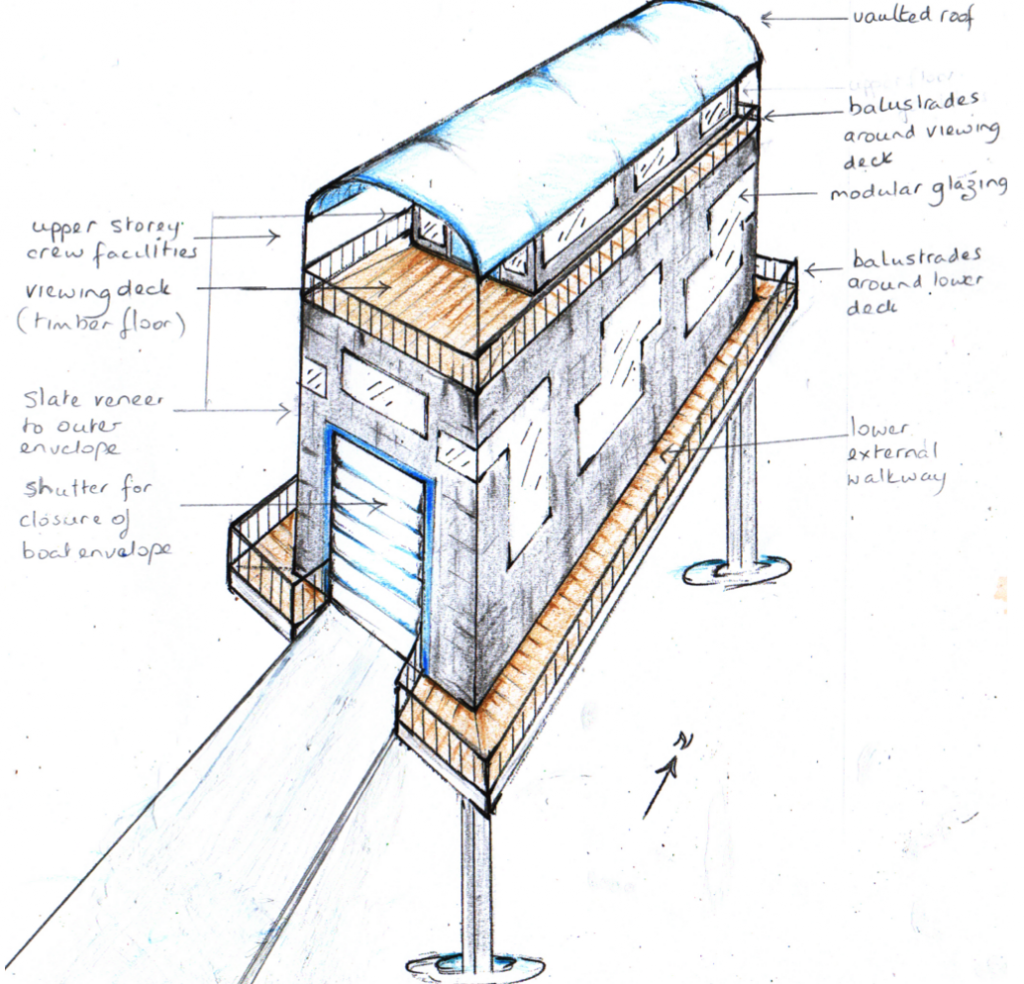 vaulted roof
upper floor
balustrades
around viewing
deck
modular glazing
balustrades
around lower
deck
lower
external
walkway
N
upper storey:
crew facilities
viewing deck
(timber floor)
Slate veneer
to outer
envelope
Shutter for
closure of
boat envelope